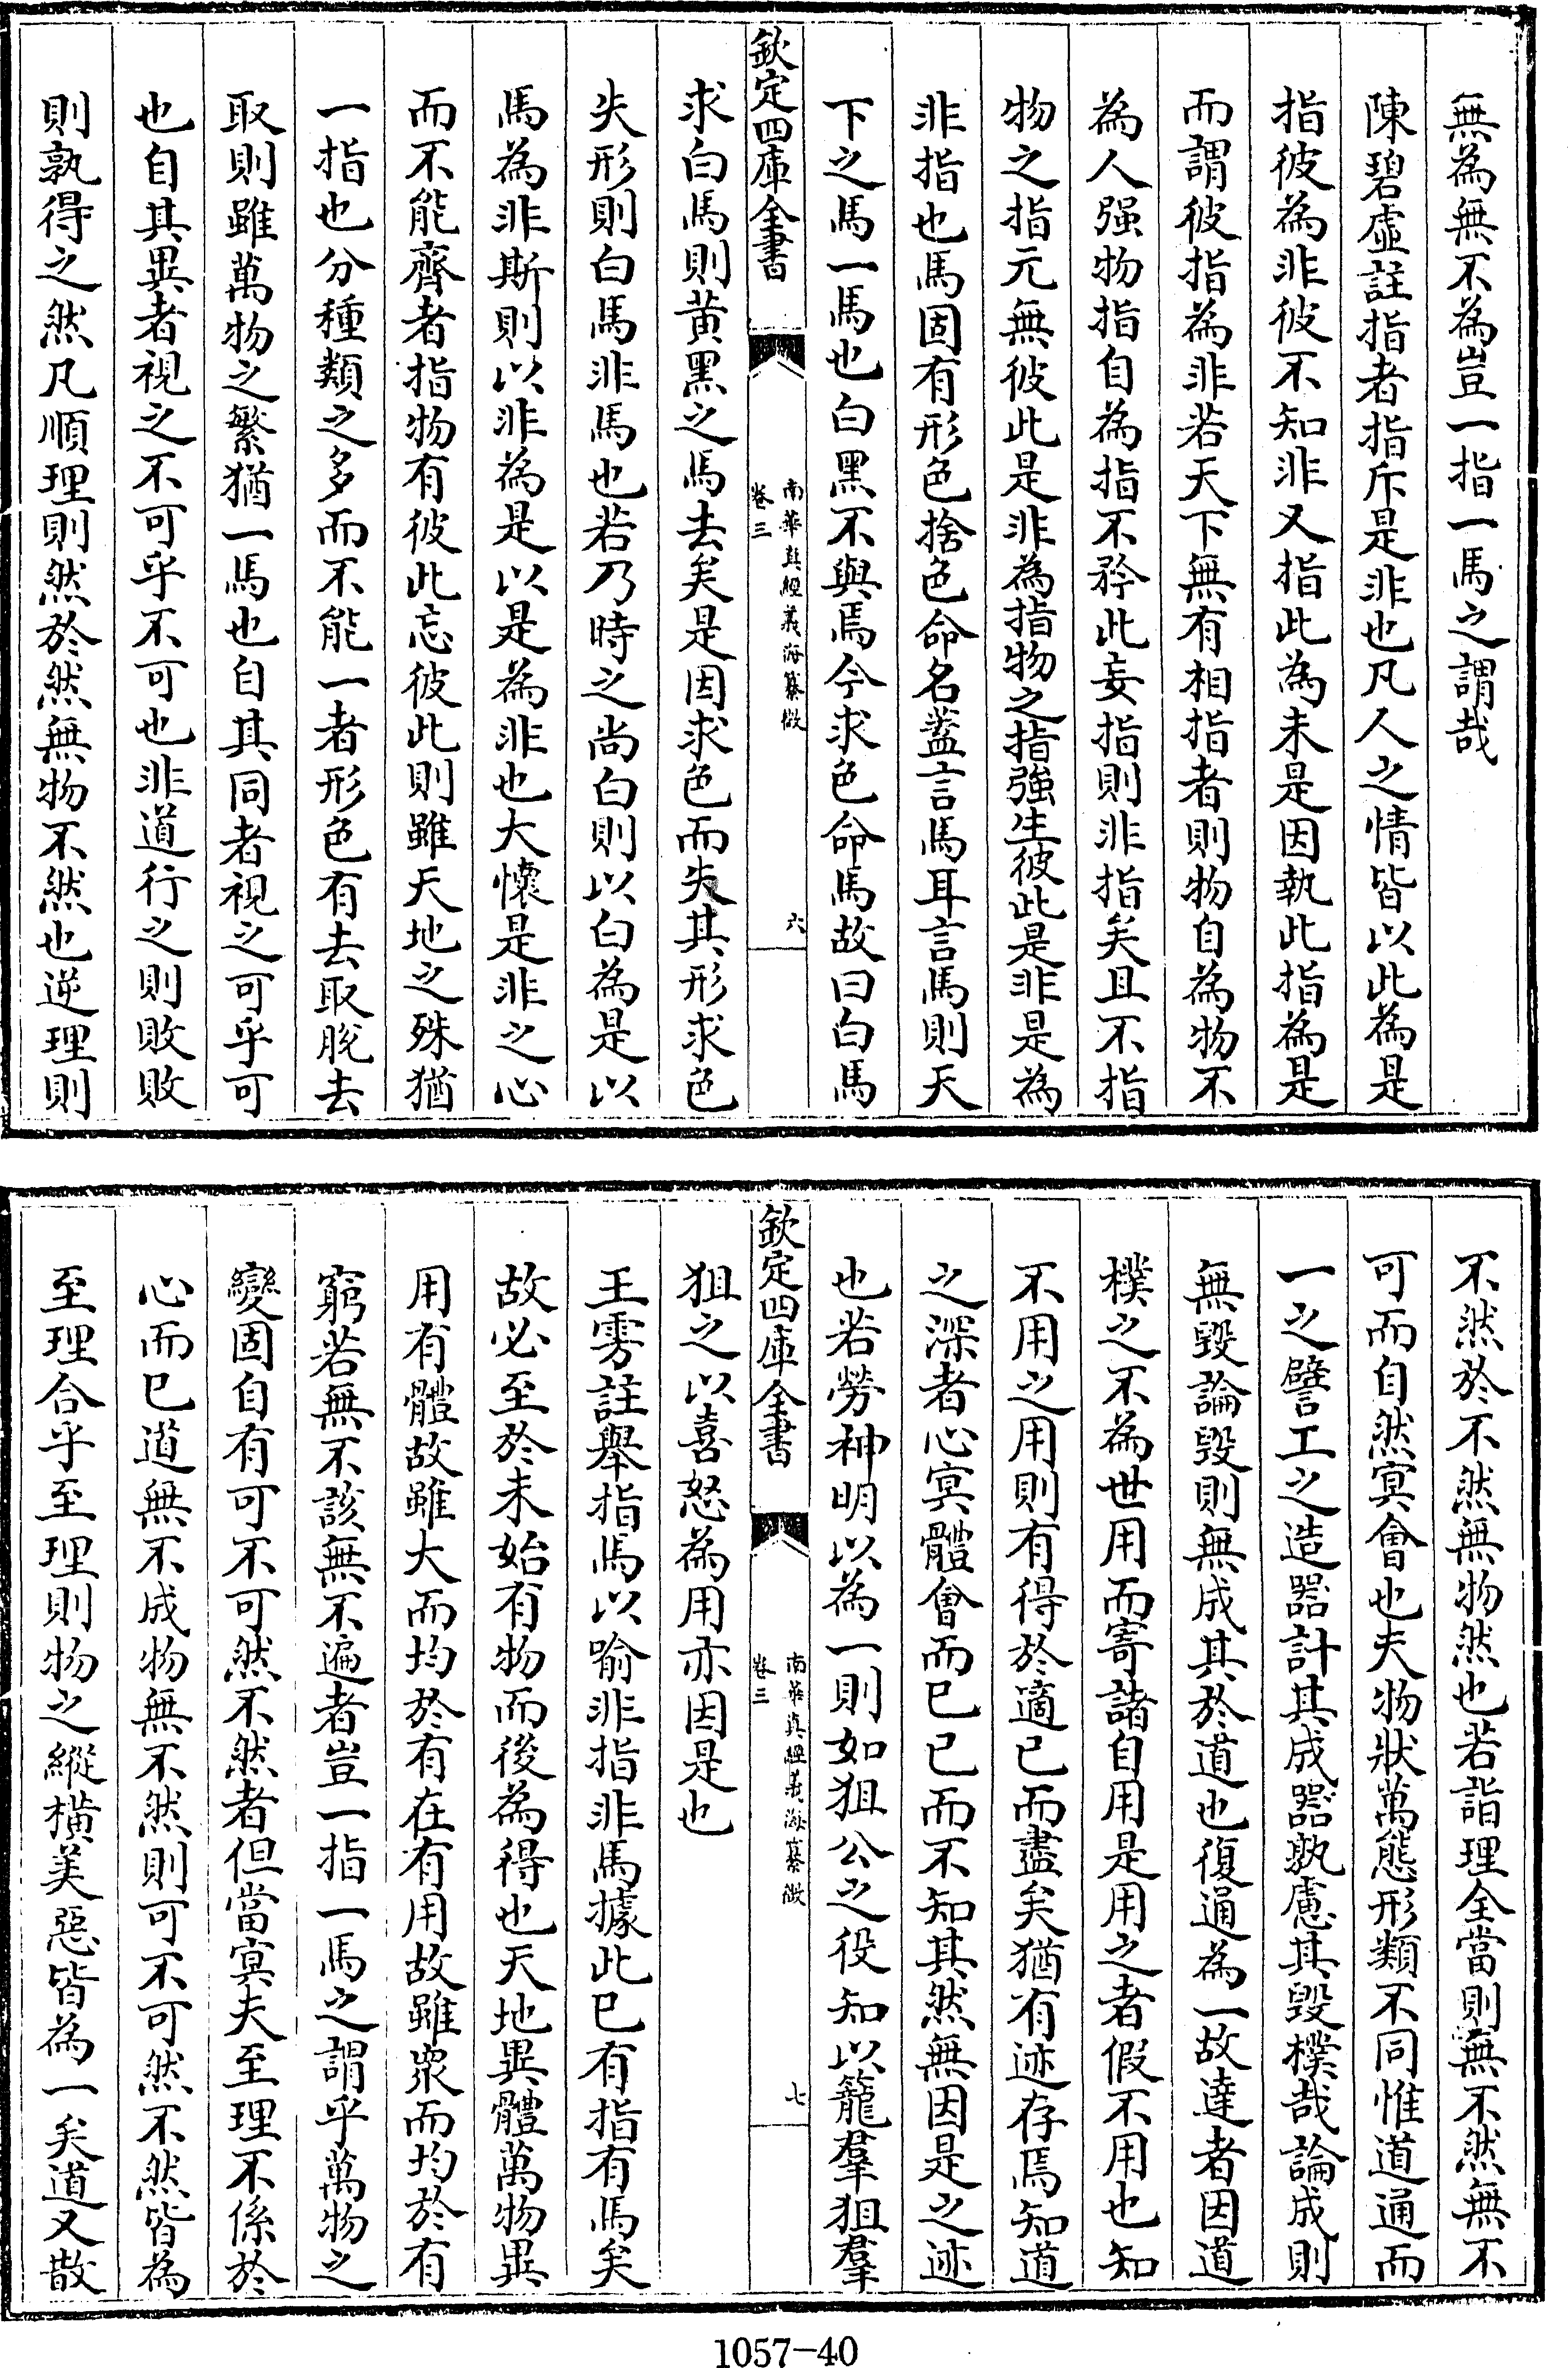 無為無不為豈一指一馬之謂哉
陳碧虛註指者指斥是非也凡人之情皆以此為是
指彼為非彼不知非又指此為未是因執此指為是
而謂彼指為非若天下無有相指者則物自為物不
為人强物指自為指不矜此妄指則非指矣且不指
物之指元無彼此是非為指物之指強生彼此是非是為
非指也馬固有形色捨色命名葢言馬耳言馬則天
下之馬一馬也白黑不與焉今求色命馬故曰白馬
欽定四庫全書
南華真經義海纂微
卷三
六
求白馬則黄黑之馬去矣是因求色而失其形求色
失形則白馬非馬也若乃時之尚白則以白為是以
馬為非斯則以非為是以是為非也大懷是非之心
而不能齊者指物有彼此忘彼此則雖天地之殊猶
一指也分種類之多而不能一者形色有去取脫去
取則雖萬物之繁猶一馬也自其同者視之可乎可
也自其異者視之不可乎不可也非道行之則敗敗
則孰得之然凡順理則然於然無物不然也逆理則
不然於不然無物然也若詣理全當則無不然無不
可而自然冥會也夫物狀萬態形類不同惟道通而
一之譬工之造器計其成器孰慮其毀樸哉論成則
無毀論毀則無成其於道也復通為一故達者因道
樸之不為世用而寄諸自用是用之者假不用也知
不用之用則有得於適已而盡矣猶有迹存焉知道
之深者心冥體會而已已而不知其然無因是之迹
也若勞神明以為一則如狙公之役知以籠羣狙羣
欽定四庫全書
南華真經義海纂微
卷三
七
狙之以喜怒為用亦因是也
王雱註舉指馬以喻非指非馬據此已有指有馬矣
故必至於未始有物而後為得也天地異體萬物異
用有體故雖大而均於有在有用故雖衆而均於有
窮若無不該無不遍者豈一指一馬之謂乎萬物之
變固自有可不可然不然者但當冥夫至理不係於
心而已道無不成物無不然則可不可然不然皆為
至理合乎至理則物之縱橫美惡皆為一矣道又散
1057-40